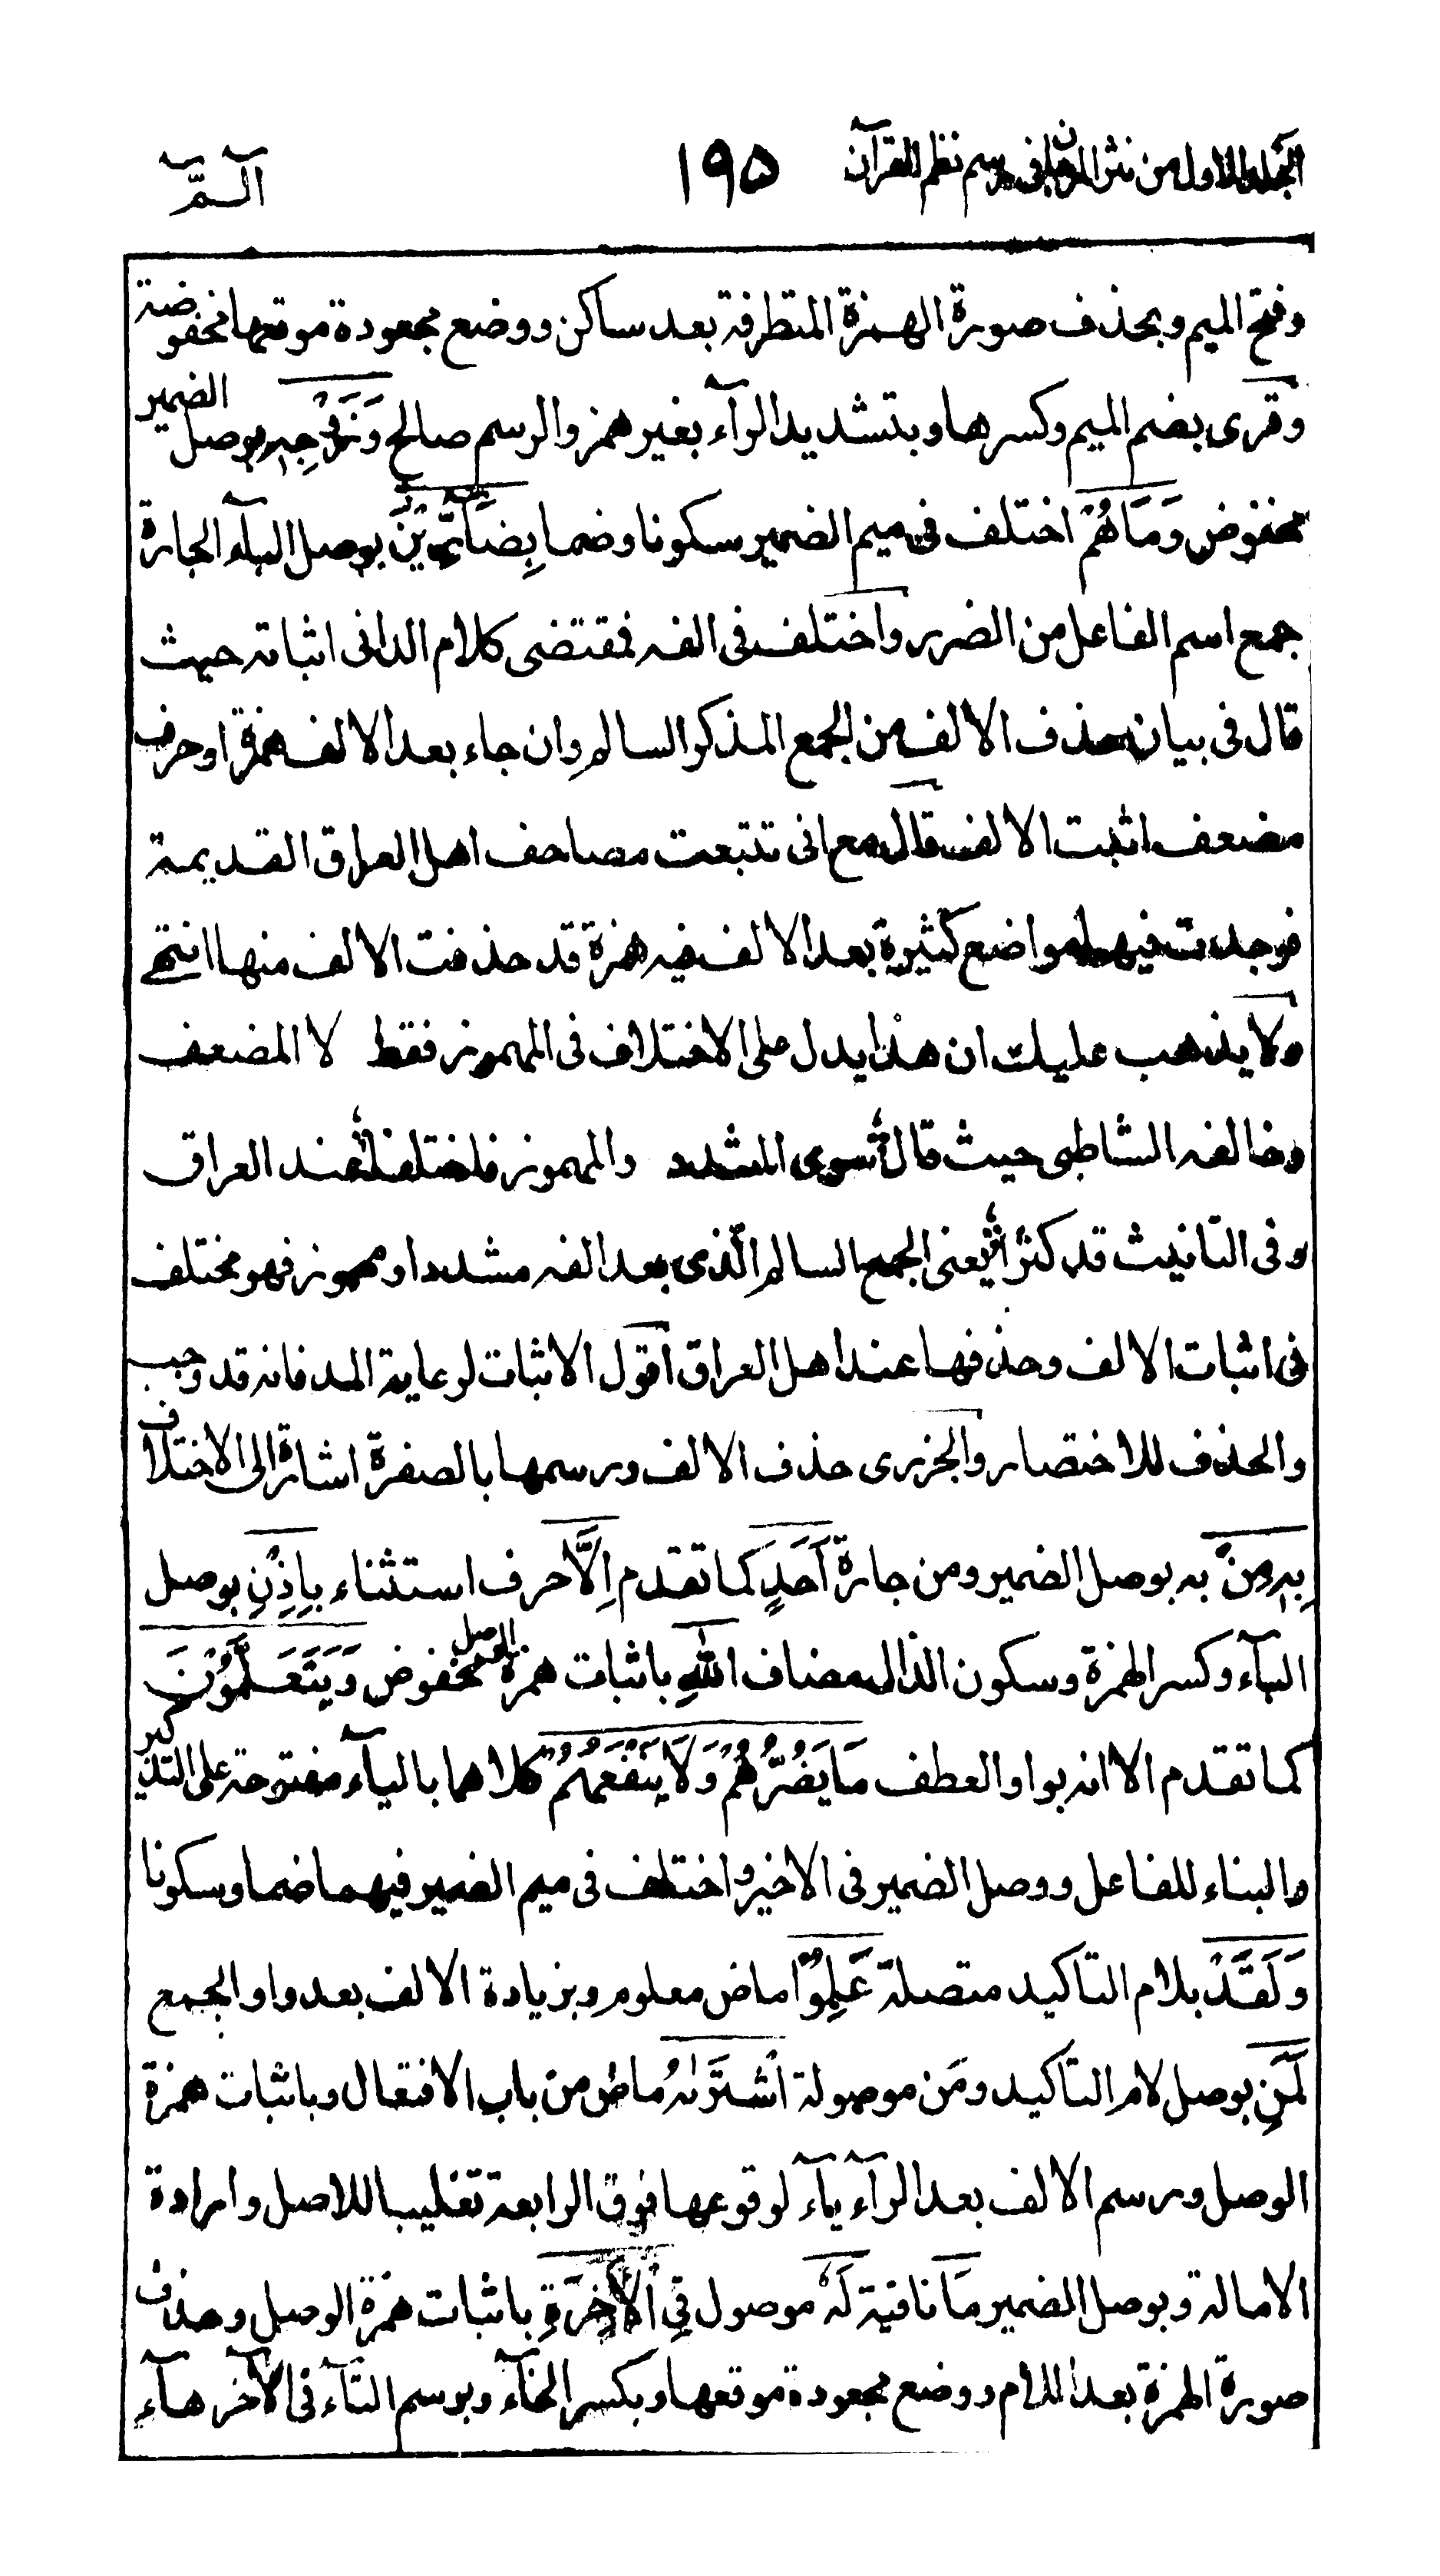 المجلد الاول من نثر المرجان فى رسم نظم القرآن ١٩٥ آلـمّٓ
وفتح الميم وبحذف صورة الهمزة المتطرفة بعد ساكن ووضع مجعودة موقعها مخفوضة
وقرى بضم الميم وكسرها وبتشديد الرآء بغير همز والرسم صالح وَزَوْجِهٖ بوصل الضمير
مخفوض وَمَا هُمْ اختلف فى ميم الضمير سكونا وضما بِضَآرِّيْنَ بوصل البآء الجارة
جمع اسم الفاعل من الضرر واختلف فى الفه فمقتضى كلام الدانى اثباته حيث
قال فى بيان حذف الالف من الجمع المذكر السالم وان جاء بعد الالف همزة او حرف
مضعف اثبت الالف قال مع انى تتبعت مصاحف اهل العراق القديمة
فوجدت فيها مواضع كثيرة بعد الالف فيه همزة قد حذفت الالف منها انتهى
ولا يذهب عليك ان هذا يدل على الاختلاف فى المهموز فقط لا المضعف
وخالفه الشاطبى حيث قال سوى المشدد والمهموز فاختلفا عند العراق
وفى التانيث قد كثرا يعنى الجمع السالم الّذى بعد الفه مشدد او مهموز فهو مختلف
فى اثبات الالف وحذفها عند اهل العراق اقول الاثبات لرعاية المد فانه قد وجب
والحذف للاختصار والجزرى حذف الالف ورسمها بالصفرة اشارة الى الاختلاف
بِهٖ مِنْ به بوصل الضمير ومن جارة اَحَدٍ كما تقدم اِلَّا حرف استثناء بِاِذْنِ بوصل
البآء وكسر الهمزة وسكون الذال مضاف اللهِ باثبات همزة الوصل مخفوض وَيَتَعَلَّمُوْنَ
كما تقدم الا انه بواو العطف مَا يَضُرُّهُمْ وَلَا يَنْفَعُهُمْ كلاهما باليآء مفتوحة على التذكير
والبناء للفاعل ووصل الضمير فى الاخير واختلف فى ميم الضمير فيهما ضما وسكونا
وَلَقَدْ بلام التاكيد متصلة عَلِمُوْا ماض معلوم وبزيادة الالف بعد واو الجمع
لَمَنِ بوصل لام التاكيد ومَن موصولة اشْتَرٰىهُ ماض من باب الافتعال وباثبات همزة
الوصل ورسم الالف بعد الرآء يآء لوقوعها فوق الرابعة تغليبا للاصل وارادة
الامالة وبوصل الضمير مَا نافية لَهٗ موصول فِى الْاٰخِرَةِ باثبات همزة الوصل وحذف
صورة الهمزة بعد اللام ووضع مجعودة موقعها وبكسر الخآء وبرسم التآء فى الآخر هآء